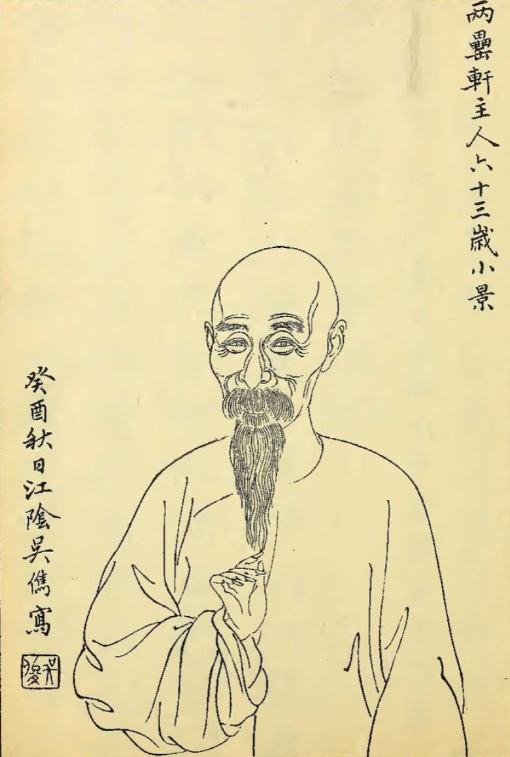 两罍軒主人六十三歲小景
癸酉秋日江陰吳儁寫